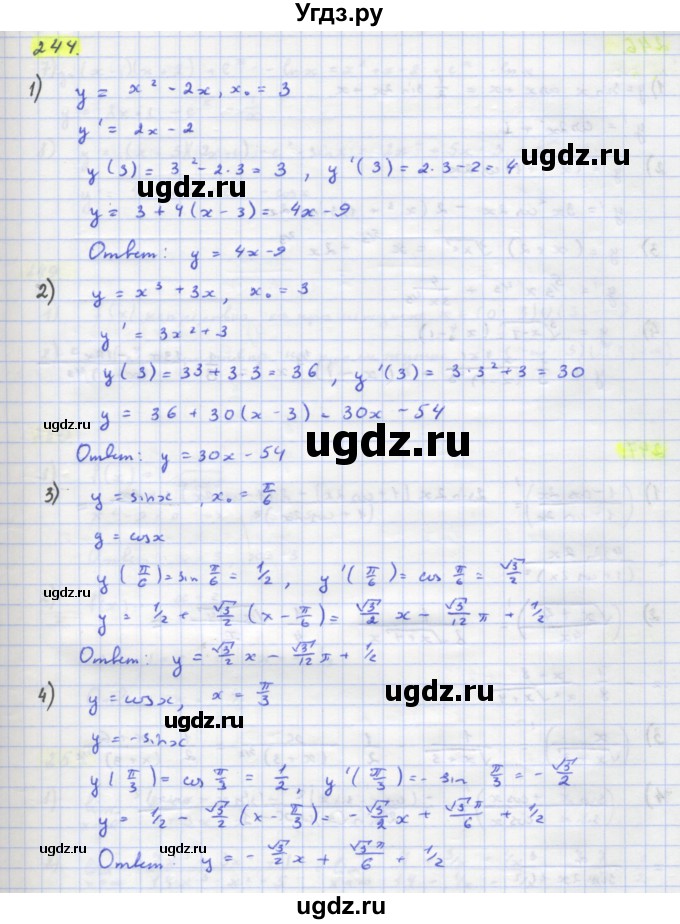 Угдз.ру
244.
1) y = x² - 2x, x₀ = 3
y' = 2x - 2
y(3) = 3² - 2·3 = 3, y'(3) = 2·3 - 2 = 4
ugdz.ru ugdz.ru
y = 3 + 4(x - 3) = 4x - 9
Ответ: y = 4x - 9
ugdz.ru
2) y = x³ + 3x, x₀ = 3
y' = 3x² + 3
y(3) = 33 + 3·3 = 36, y'(3) = 3·3² + 3 = 30
y = 36 + 30(x - 3) = 30x - 54
ugdz.ru ugdz.ru
Ответ: y = 30x - 54
3) y = sinx, x₀ = π/6
y = cosx
ugdz.ru
y(π/6) = sin π/6 = 1/2, y'(π/6) = cos π/6 = √3/2
ugdz.ru
y = 1/2 + √3/2 (x - π/6) = √3/2 x - √3/12 π + 1/2
Ответ: y = √3/2 x - √3/12 π + 1/2
4) y = cosx, x = π/3
ugdz.ru
y = -sinx
y(π/3) = cos π/3 = 1/2, y'(π/3) = - sin π/3 = - √3/2
y = 1/2 - √3/2 (x - π/3) = - √3/2 x + √3π/6 + 1/2
ugdz.ru ugdz.ru
Ответ: y = - √3/2 x + √3π/6 + 1/2
ugdz.ru